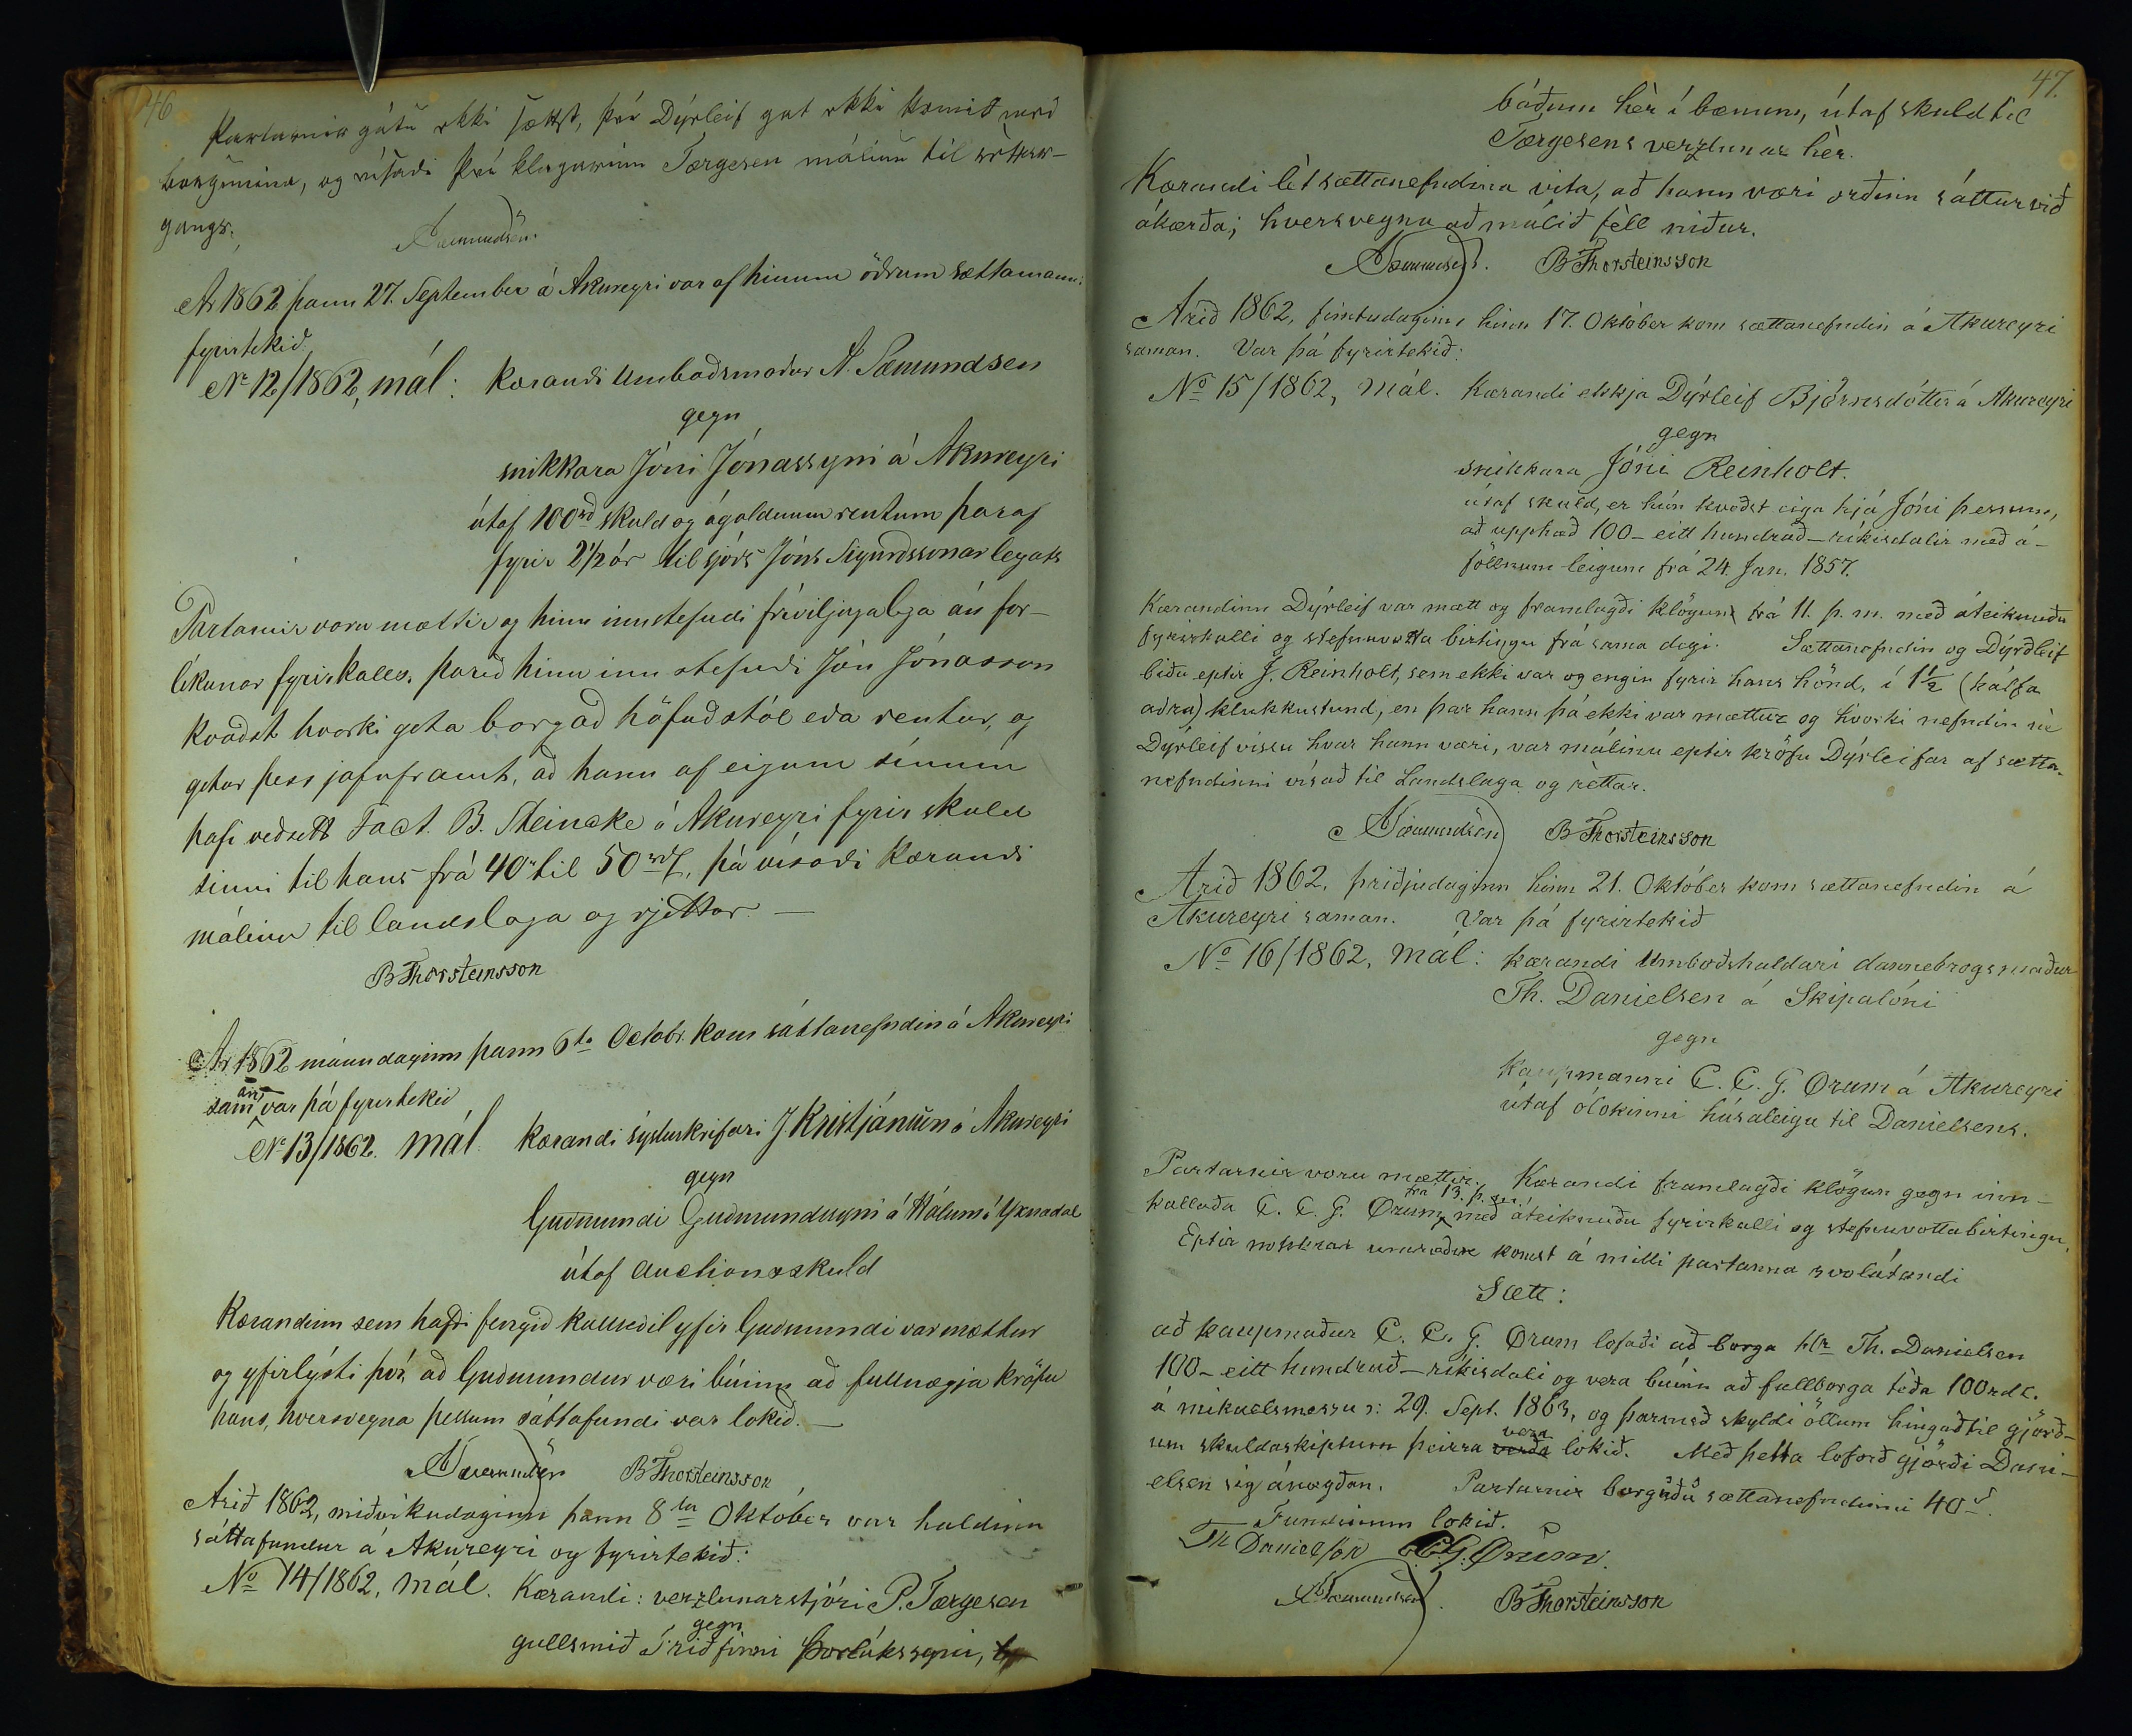 46
Partarnir gátu ekki sættst, því Dýrleif gat ekki komið með
borgunina, og vísaði því klagarinn Tærgesen málinu til réttar-
gangs.
ASæmundsen
Ár 1862 þann 27. September á Akureyri var af hinum öðrum sættamanni
fyrirtekið.
No 12/1862, mál: Kærandi Umboðsmaður A. Sæmundsen
gegn
snikkara Jóni Jónassyni á Akureyri
útaf 100rd skuld og ógoldnum rentum þaraf
fyrir 2 1/2 ár til sjóðs Jóns Sigurðssonar legats
Partarnir voru mættir og hinn innstefndi fríviljuglega án for-
líkunar fyrirkalls. Þareð hinn innstefndi Jón Jónasson
kvaðst hvorki geta borgað höfuðstól eða rentur, og
getur þess jafnframt, að hann af eigum sínum
hafi veðsett Fact. B. Steincke á Akureyri fyrir skuld
sinni til hans frá 40 til 50 rd, þá vísaði Kærandi
málinu til landslaga og rjettar. —
BThorsteinsson
Ár 1862 mánudaginn þann 6ta Octobr. kom sáttanefndin á Akureyri
saman, var þá fyrirtekið
No 13/1862. mál. Kærandi sýsluskrifari J. Kristjánsson á Akureyri
gegn
Guðmundi Guðmundssyni á Hálum í Yxnadal
útaf auctionsskuld
Kærandinn sem hafði fengið kallseðil yfir Guðmundi var mættur
og yfirlýsti því, að Guðmundur væri búinn að fullnægja kröfu
hans, hversvegna þessum sáttafundi var lokið. —
ASæmundsen BThorsteinsson
Arið 1862, miðvikudaginn þann 8da Október var haldinn
sáttafundur á Akureyri og fyrirtekið:
No 14/1862, mál. Kærandi: verzlunarstjóri P. Tærgesen
gegn
gullsmið Friðfinni Þorlákssyni,
47.
báðum hèr í bænum, útaf skuld til
Tærgesens verzlunar hèr.
Kærandi lèt sættanefndina vita, að hann væri orðinn sáttur við
ákærða; hversvegna að málið fèll niður.
ASæmundsen. BThorsteinsson
Arið 1862, fimtudaginn hinn 17. Október kom sættanefndin á Akureyri
saman. Var þá fyrirtekið:
No 15/1862, mál. Kærandi ekkja Dýrleif Björnsdóttir á Akureyri
gegn
snikkara Jóni Reinholt.
útaf skuld, er hún kvaðst eiga hjá Jóni þessum,
að upphæð 100 - eitt hundrað - ríkisdalir með á-
föllnum leigum frá 24 Jan. 1857.
Kærandinn Dýrleif var mætt og framlagði klögun frá 11. þ. m. með áteiknuðu
fyrirkalli og stefnuvotta birtingu frá sama degi. Sættanefndin og Dýrðleif
biðu eptir J. Reinholt, sem ekki var og engin fyrir hans hönd, í 1 1/2 (hálfa
aðra) klukkustund, en þar hann þá ekki var mættur og hvorki nefndin nè
Dýrleif vissu hvar hann væri, var málinu eptir kröfu Dýrleifar af sætta-
nefndinni vísað til Landslaga og rèttar.
ASæmundsen BThorsteinsson
Arið 1862, þriðjudaginn hinn 21. Október kom sættanefndin á
Akureyri saman. Var þá fyrirtekið
No 16/1862, mál: kærandi Umboðshaldari dannebrogsmaður
Th. Danielsen á Skipalóni
gegn
kaupmanni C. C. G. Ørum á Akureyri
útaf ólokinni húsaleigu til Danielsens.
Partarnir voru mættir. Kærandi framlagði klögun gegn inn-
kallaða C. C. G. Ørum frá 13. þ. m. með áteiknuðu fyrirkalli og stefnuvottabirtingu.
Eptir nokkrar umræður komst á milli partanna svolátandi
Sætt:
að kaupmaður C. C. G. Ørum lofaði að borga Hr Th. Danielsen
100 - eitt hundrað - ríkisdali og vera búinn að fullborga tèða 100rdl.
á mikaelsmessu s: 29. Sept. 1863, og þarmeð skyldi öllum hingaðtil gjörð-
um skuldaskiptum þeirra verða vera lokið. Með þetta loforð gjörði Dani-
elsen sig ánægðan. Partarnir borguðu sættanefndinni 40 s.
Fundinum lokið.
Th Danielsen CCG. Ørum.
ASæmundsen. BThorsteinsson